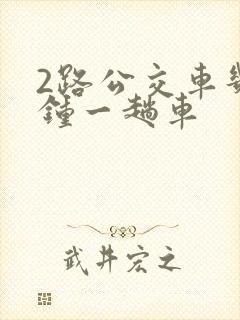 2路公交車
鐘一趟車
武井宏之